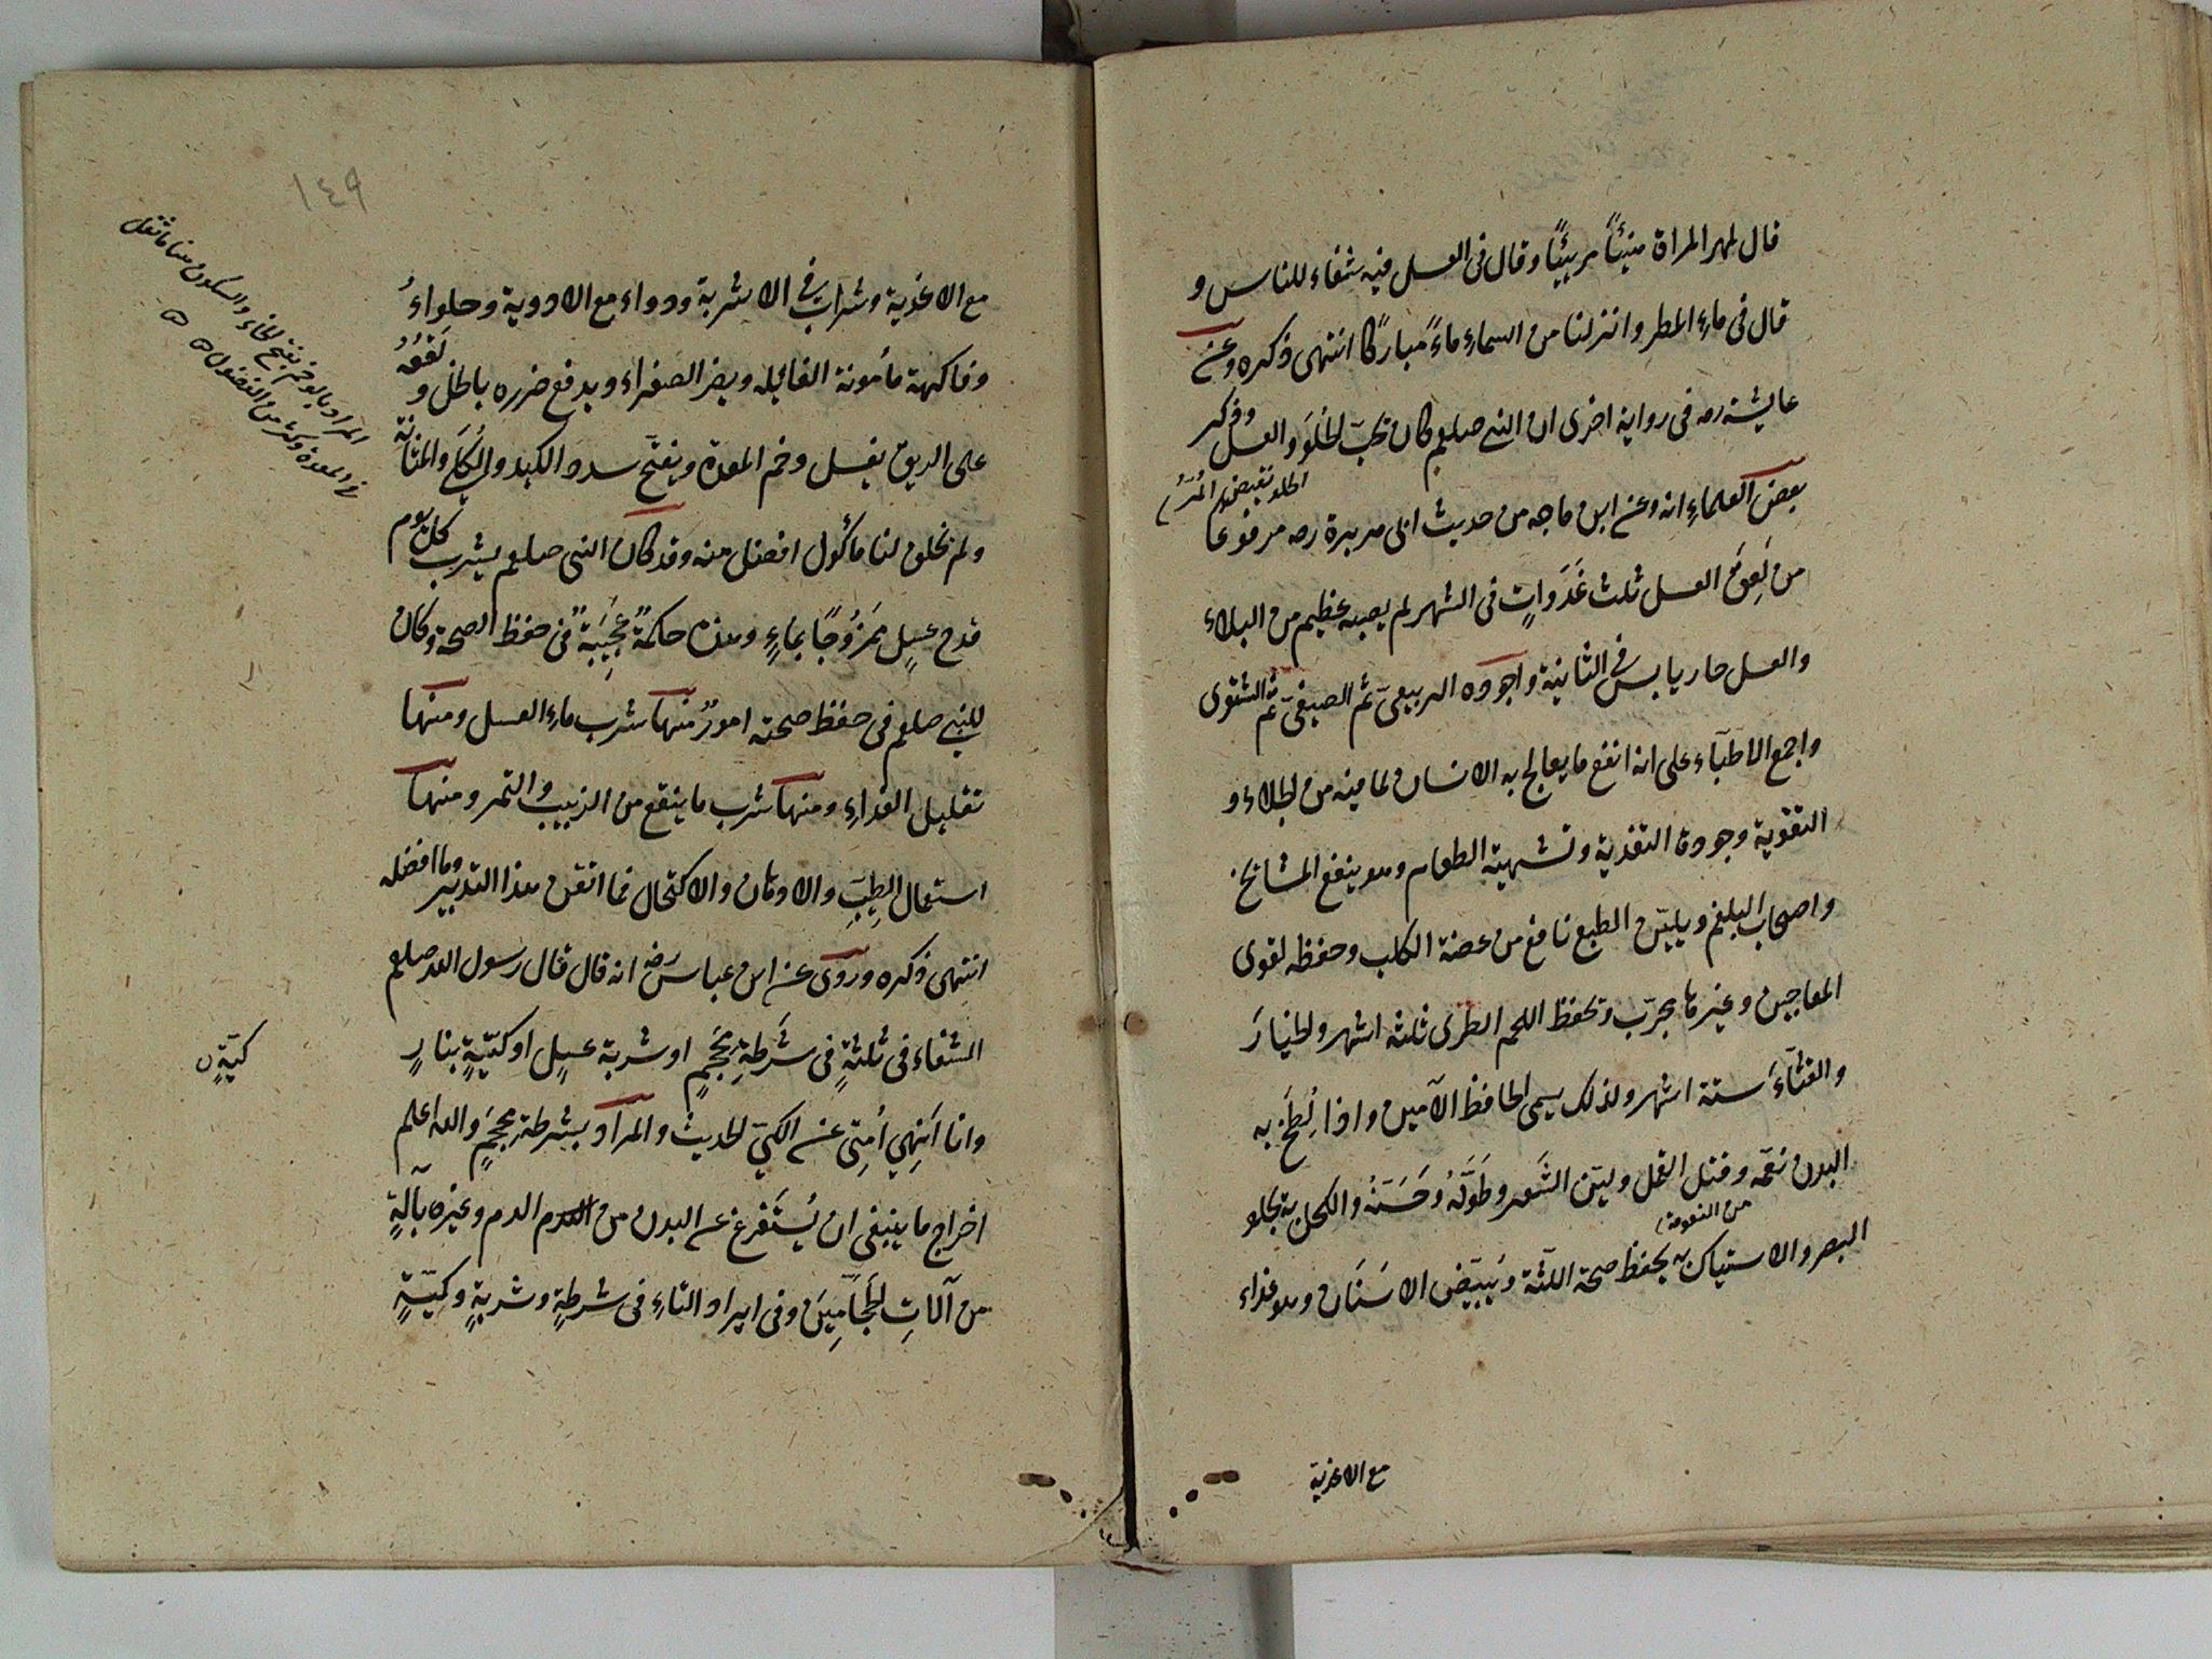 قال لمهر المراة هنيئاً مريئًا وقال فى العسل فيه شفاء للناس و
قال فى ماءِ المطر وانزلنا من السماءِ ماءً مباركًا انتهى ذكره وعن
عايشة رضـ فى رواية اخرى ان النبى صلعم كان يحبّ الحُلوَ والعسل وذكر
الحلو نقيض المُرّ
بعض العلماءِ انه وعن ابن ماجه من حديث ابى هريرة رضـ مرفوعا
من لَعِقَ العسل ثلث غَدَواتٍ فى الشهر لم يصبه عظيم من البلاء
والعسل حار يابس فى الثانية واجوده الربيعىّ ثم الصيفىّ ثم الشتوى
واجمع الاطبّاء على انه انفع ما يعالج به الانسان لما فيه من الجلاء و
التقوية وجودة التغذية وتشهية الطعام وهو ينفع المشائخ
واصحاب البلغم ويليّن الطبع نافع من عضة الكلب وحفظه لقوى
المعاجين وغيرها مجرّب وتحفظ اللحم الطرى ثلثة اشهر والخيارَ
والقثّآءَ ستة اشهر ولذلك يسمى الحافظ الآمين واذا لُطِخَ به
البدن نعّمه وقتل القمل وليّن الشَعر وطَوّلَهُ وحَسَّنَهُ والكحل به يجلو
من النعومة
البصر والاستياك به يحفظ صحة اللثّة ويُبيّض الاسنَان وهو غذاء
مع الاغذية
١٤٩
مع الاغذية وشراب فى الاشربة ودواء مع الادوية وحلواءُ
وفاكهة مأمونة الغائيله ويضر الصفراء ويدفع ضرره بالخل و لَعْقُهُ
على الريق يغسل وخم المعدة ويفتّح سدد الكبد والكُلَى والمثانة
ولم يخلق لنا مأكول افضل منه وقد كان النبى صلعم يشرب كل يوم
قدح عسلٍ ممزُوجًا بماءٍ وهذه حكمةٌ عجيبَةٌ فى حفظ الصحة وكان
للنبى صلعم فى حفظ صحته امورٌ منها شرب ماءِ العسل ومنها
تقليل الغذاءِ ومنها شرب ما ينقع من الزبيب والتمر ومنها
استعمال الطِيبَ والادهان والاكتحال فما اتقن هذا التدبير وما افضله
انتهى ذكره وروى عن ابن عباس رضـ انه قال قال رسول الله صلعم
الشفاء فى ثلثةٍ فى شَرطَةِ مِحْجَمٍ او شربة عسلٍ او كيّةٍ بنارٍ
كيّةٍ
وانا اَنهِي اُمتِى عن الكيّ الحديث والمراد بشرطة مِحجَمٍ والله اعلم
اخراج ما ينبغى ان يُستَفرغ عن البدن من الدم وغيره بآلةٍ
من آلاتِ الحَجّامِينَ وفى ايراد التاءِ فى شرطةٍ وشربةٍ وكيّةٍ
المراد بالوخم بفتح الخاء والسكون هنا ما ثقل
فى المعدة وكثر من الفضول